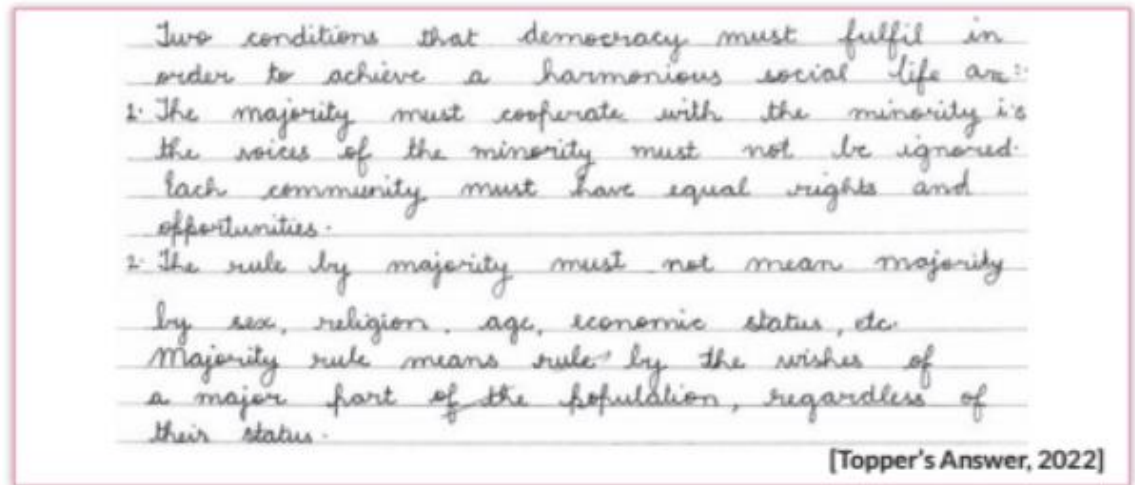 Two conditions that democracy must fulfil in
order to achieve a harmonious social life are:-
1. The majority must cooperate with the minority i.e
the voices of the minority must not be ignored.
Each community must have equal rights and
opportunities.
2. The rule by majority must not mean majority
by sex, religion, age, economic status, etc.
Majority rule means rule by the wishes of
a major part of the population, regardless of
their status.
[Topper's Answer, 2022]